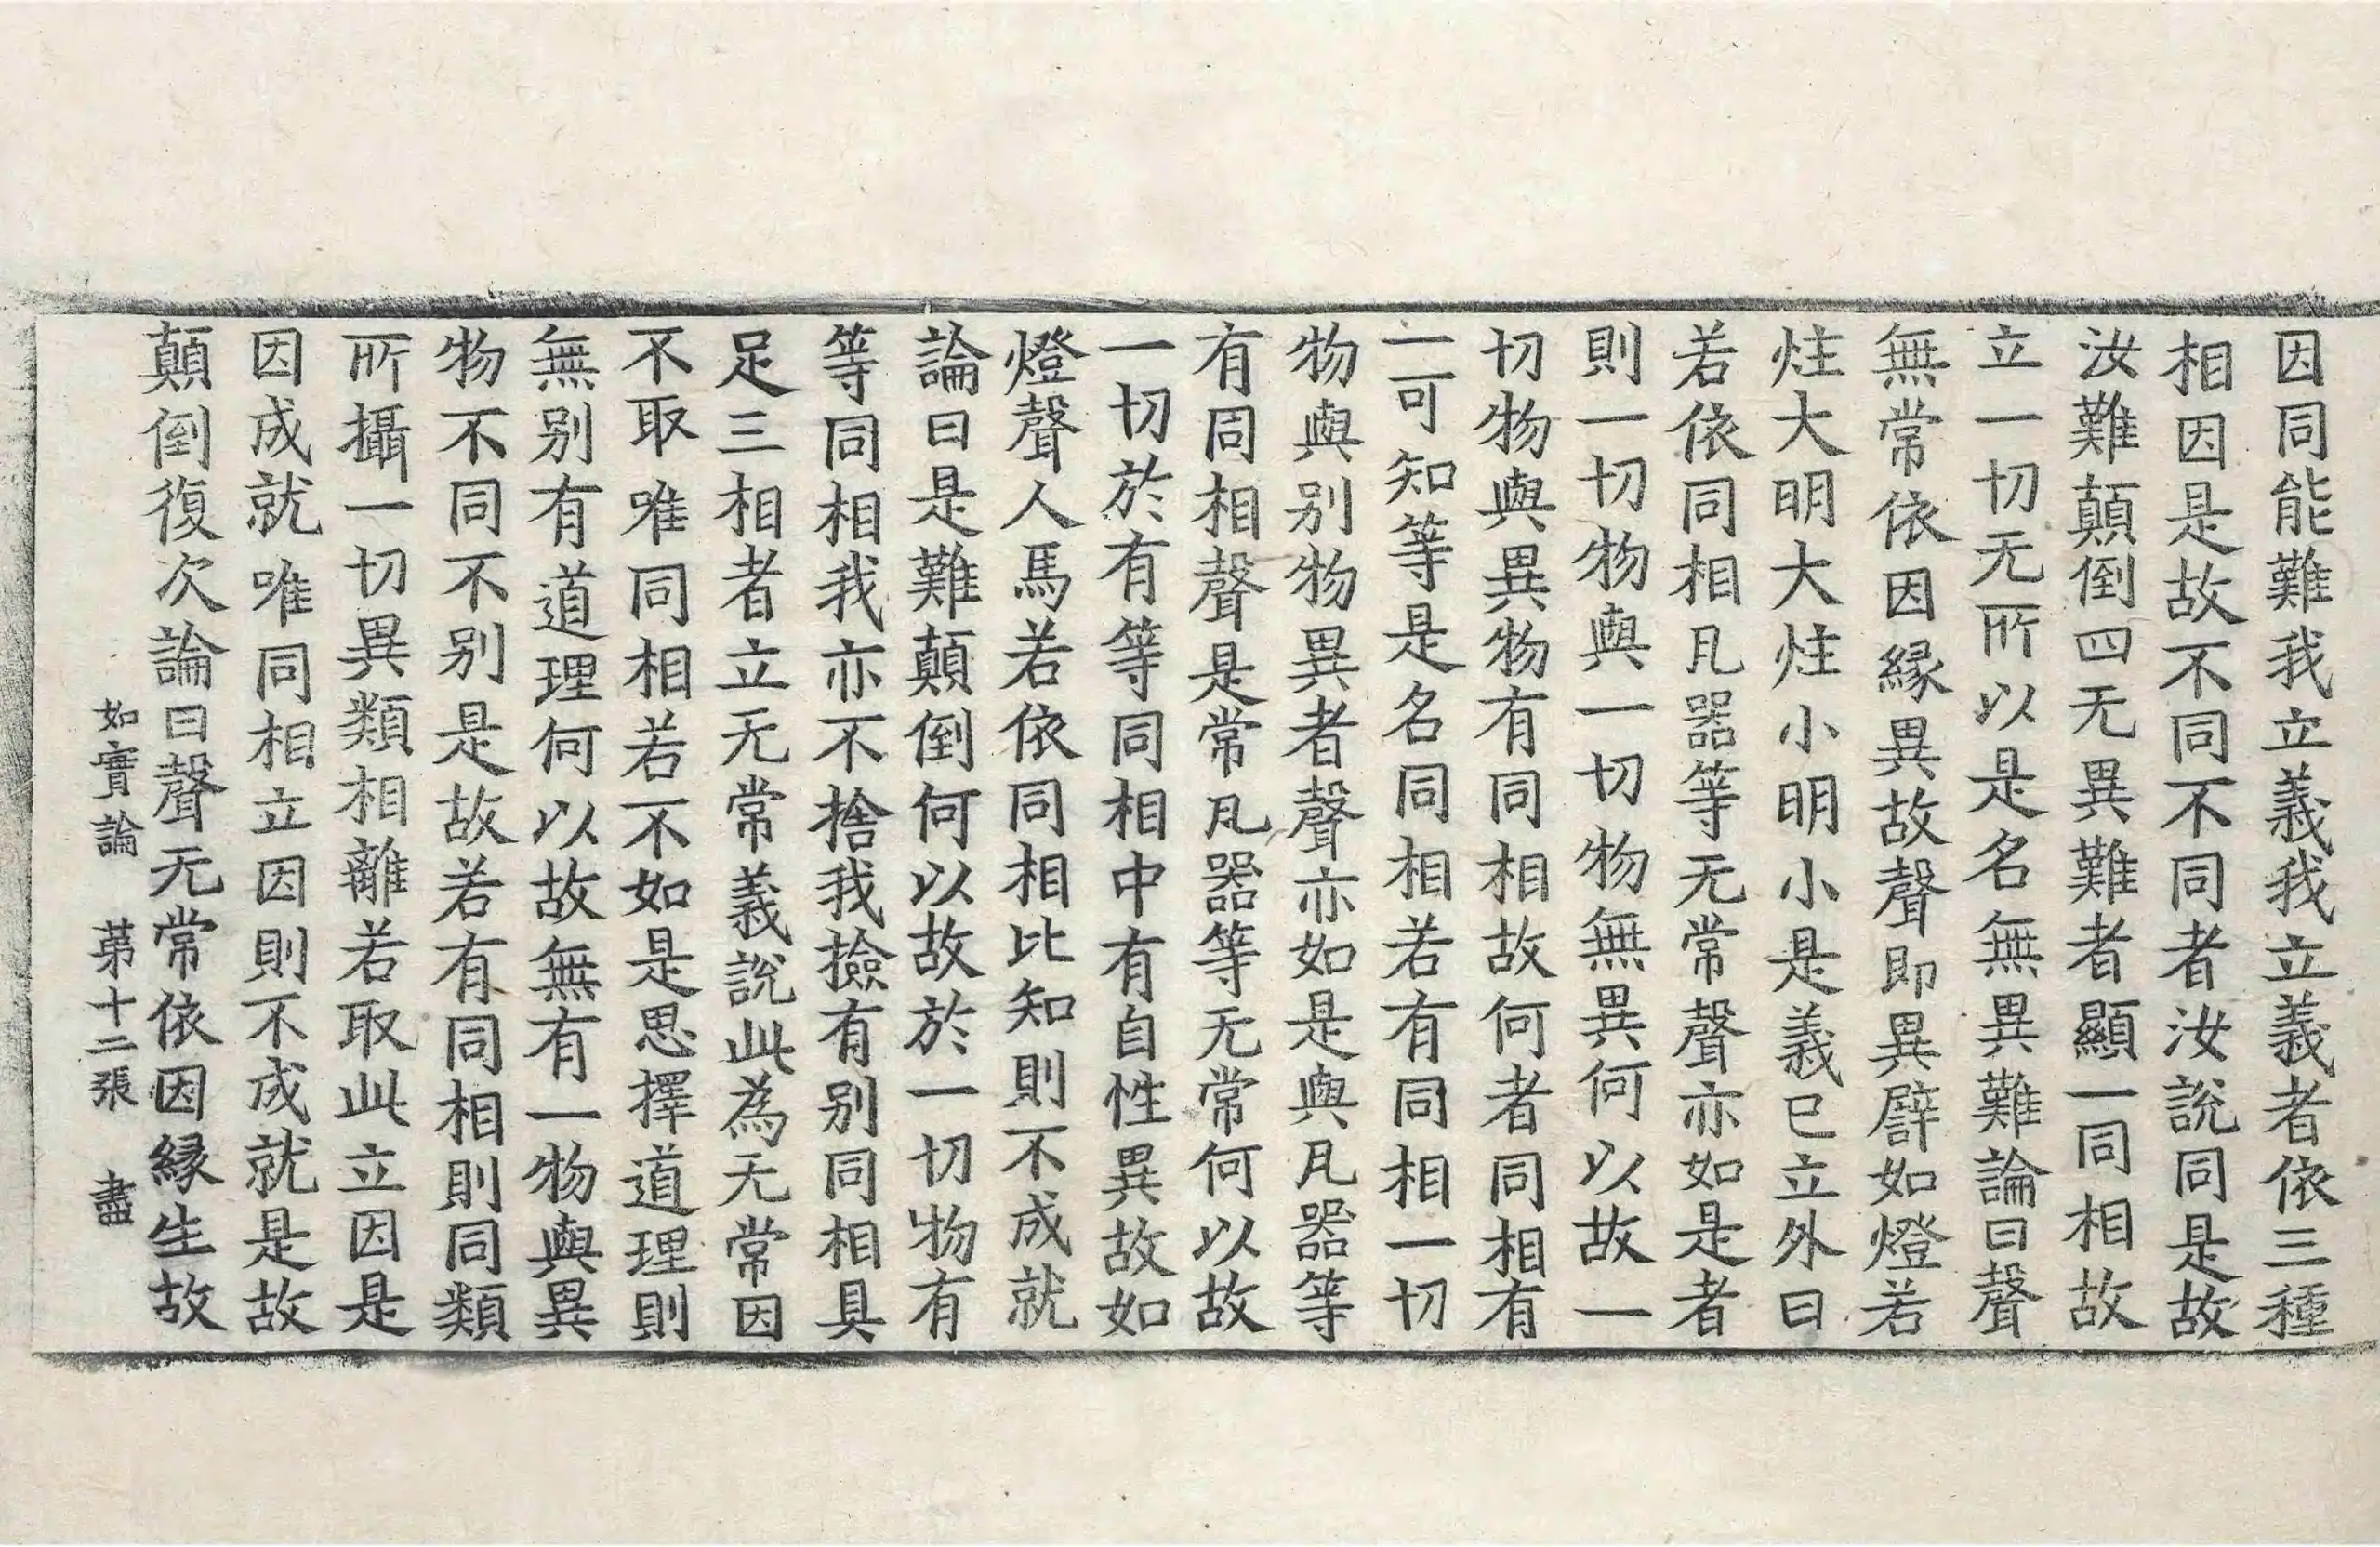 因同能難我立義我立義者依三種
相因是故不同不同者汝說同是故
汝難顛倒四无異難者顯一同相故
立一切无所以是名無異難論曰聲
無常依因緣異故聲即異譬如燈若
炷大明大炷小明小是義已立外曰
若依同相凡器等无常聲亦如是者
則一切物與一切物無異何以故一
切物與異物有同相故何者同相有
一可知等是名同相若有同相一切
物與別物異者聲亦如是與凡器等
有同相聲是常凡器等无常何以故
一切於有等同相中有自性異故如
燈聲人馬若依同相比知則不成就
論曰是難顛倒何以故於一切物有
等同相我亦不捨我撿有別同相具
足三相者立无常義說此為无常因
不取唯同相若不如是思擇道理則
無別有道理何以故無有一物與異
物不同不別是故若有同相則同類
所攝一切異類相離若取此立因是
因成就唯同相立因則不成就是故
顛倒復次論曰聲无常依因緣生故
如實論 苐十二張 盡